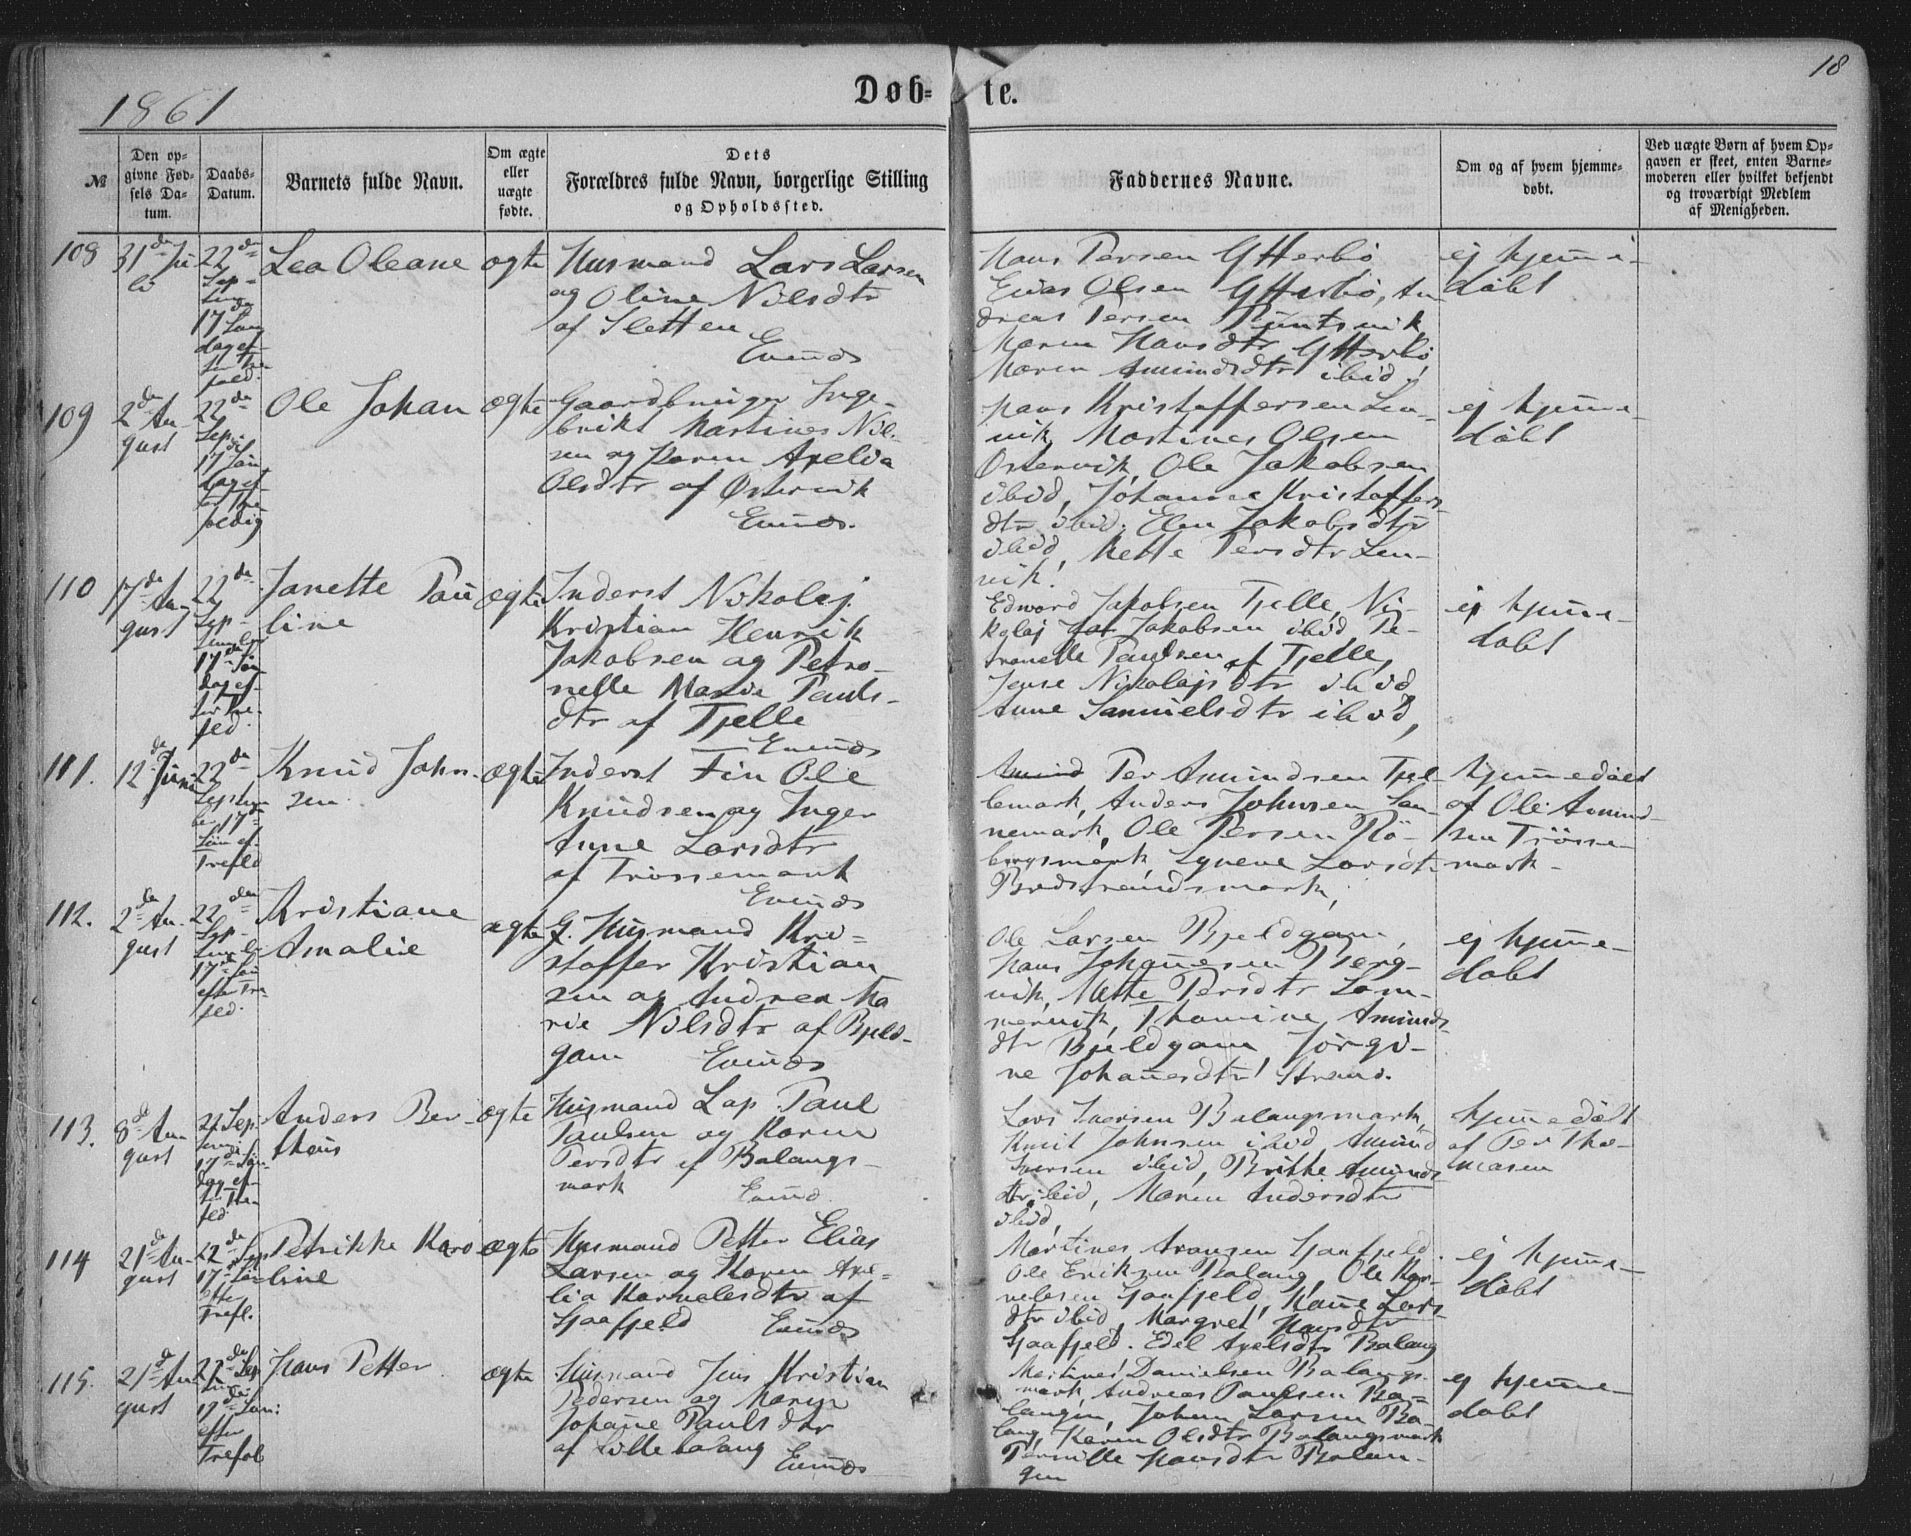 1861
Døb-
te.
18
№
Den op-
givne Fød-
sels Da-
tum.
Daabs-
Datum.
Barnets fulde Navn.
Om ægte
eller
uægte
fødte.
Dets
Forældres fulde Navn, borgerlige Stilling
og Opholdssted.
Faddernes Navne.
Om og af hvem hjemme-
døbt.
Ved uægte Børn af hvem Op-
gaven er skeet, enten Barne-
moderen eller hvilket bekjendt
og troværdigt Medlem
af Menigheden.
108
31de Ju
li
22de
Sep-
17
dag ef-
Lea Oleane
ægte
Husmand Lars Larsen
og Oline Nilsdtr
af Sletten
Evenæs
Hans Persen
Elias Olsen
dreas Persen
Maren Hansdtr
Maren Amundsdtr ibid,
ej hjemme-
døbt
109
2de Au-
gust
22de
Sep-
17 Søn
dag ef-
Ole Johan
ægte
Gaardbruger Inge-
brikt Martines Nil-
sen og Karen Axelia
Olsdtr af Østervik
Evenæs.
Hans Kristoffersen Len-
vik, Martines Olsen
Østervik, Ole Jakobsen
ibid, Johanna Kristoffers
dtr ibid. Elen Jakobsdtr
ibid, Mette Persdtr Len-
vik!
ej hjemme-
døbt
110
17de Au-
gust
22de
Sep-
tember
17de Søn
dag ef-
ter Tre-
fed.
Janette Pau
line
ægte
Inderst Nikolaj
Kristian Henrik
Jakobsen og Petro-
nelle Maria Pauls-
dtr af Tjelle
Evenæs
Edward Jakobsen Tjelle, Ni-
kolaj Jakobsen ibid, Pe-
tronelle Paulsen af Tjelle,
Jense Nikolajsdtr ibid
Anne Samuelsdtr ibid,
ej hjemme-
døbt
111.
12de Juni
22de
Septem
ber 17de
Søn ef-
Trefld
Knud John-
sen
ægte
Inderst Fin Ole
Knudsen og Inger
Anne Larsdtr
af Trøssemark
Evenæs
Amund Per Amundsen Tjel-
lemark, Anders Johnsen San-
nemark, Ole Persen Rö-
bergsmark, Larsdtr
hjemmedøbt
af Ole Amund-
sen Trösse-
mark-
112.
2de Au-
gust
22de
Sep-
17de Søn
efter Tre-
fed.
Kristiane
Amalie
ægte
G. Husmand Kri-
stoffer Kristian
sen og Andrea Ma
rie Nilsdtr af Bjeld-
gam Evenæs
Ole Larsen Bjeldgam,
Hans Johannesen Berg-
vik, Mette Persdtr Lom-
mervik, Thomine Amunds-
dtr Bjeldgam, Jörgi-
ne Johannesdtr Strand.
ej hjemme-
døbt
113.
8de Au-
gust
22 Sep-
17de Søn-
dag ef-
ter Tre-
fld
Anders Ber
theus
ægte
Husmand Lap Paul
Paulsen og Karen
Persdtr af Balangs-
mark Evenæs
Lars Iversen Balangsmark,
Knut Johnsen ibid Amund
Iversen ibid, Britthe Amunds
dtr ibid, Maren Andersdtr
ibid,
hjemmedøbt
af Per Tho-
masen
114
21de Au-
gust
22de Sep
17de Søn
efter
Trefl.
Petrikke Karo-
line
ægte
Husmand Petter Elias
Larsen og Karen Axe-
lia Kornelesdtr af
Sjaafjeld Evenæs
Martines Aronsen Sjaafjeld.
Ole Eriksen Balang, Ole Kor-
nelesen Sjaafjeld, Hanne Lars
dtr ibid, Margret Hansdtr
Sjaafjeld. Edel Axelsdtr Balang
ej hjemme-
døbt
115.
21de Au-
gust
22de Sep
17de Søn:
efter
Trefol
Hans Petter
ægte
Husmand Jens Kristian
Pedersen og Maren
Johanne Paulsdtr
af Lillebalang
Evenæs
Martines Danielsen Balangs-
mark, Andreas Paulsen Ba-
langen, Johan Larsen Ba-
lang, Karen Olsdtr Balangsmark
Pernille Hansdtr Balan-
gen
ej hjemme-
døbt